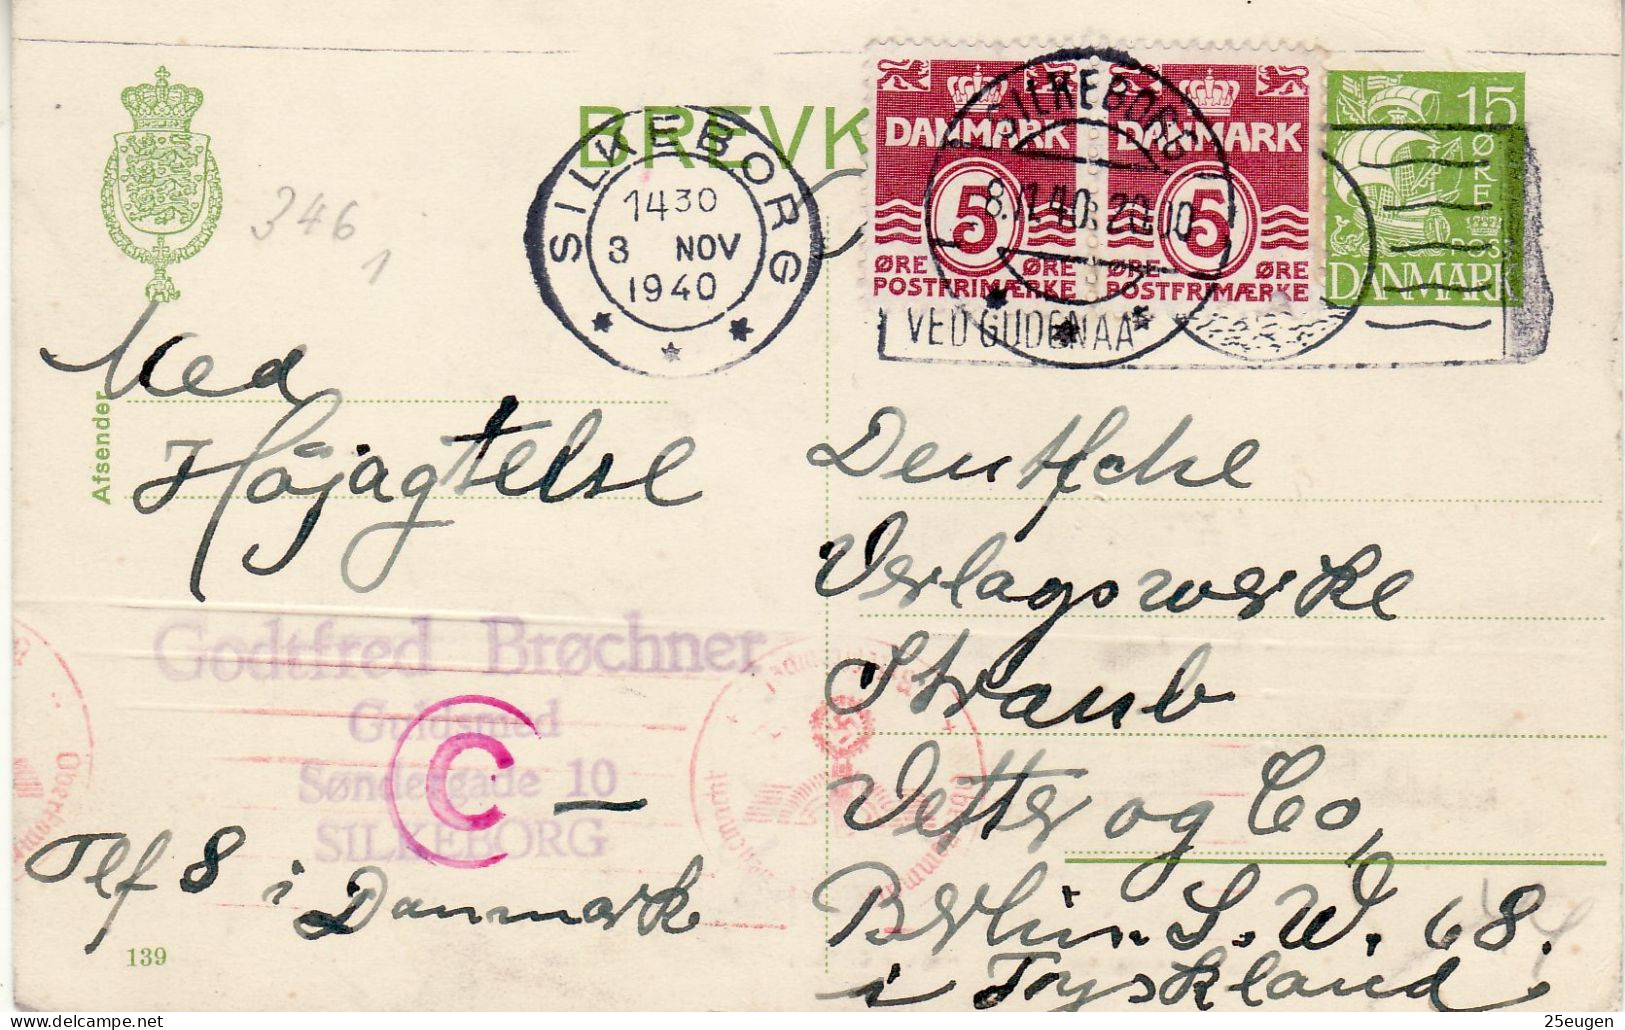 BREVK
15
ØRE
POST
DANMARK
DANMARK
5
ØRE ØRE
POSTFRIMÆRKE
DANMARK
5
ØRE ØRE
POSTFRIMÆRKE
SILKEBORG
1430
3 NOV
1940
SILKEBORG
VED GUDENAA
346
1
Afsender
Med
Højagtelse
Godtfred Brøchner
Guldsmed
Søndergade 10
SILKEBORG
C
Tlf 8 i Danmark
139
Deutsche
Verlagswerke
Straub
Vetter og Co,
Berlin. S. W. 68.
i Tyskland
25eugen